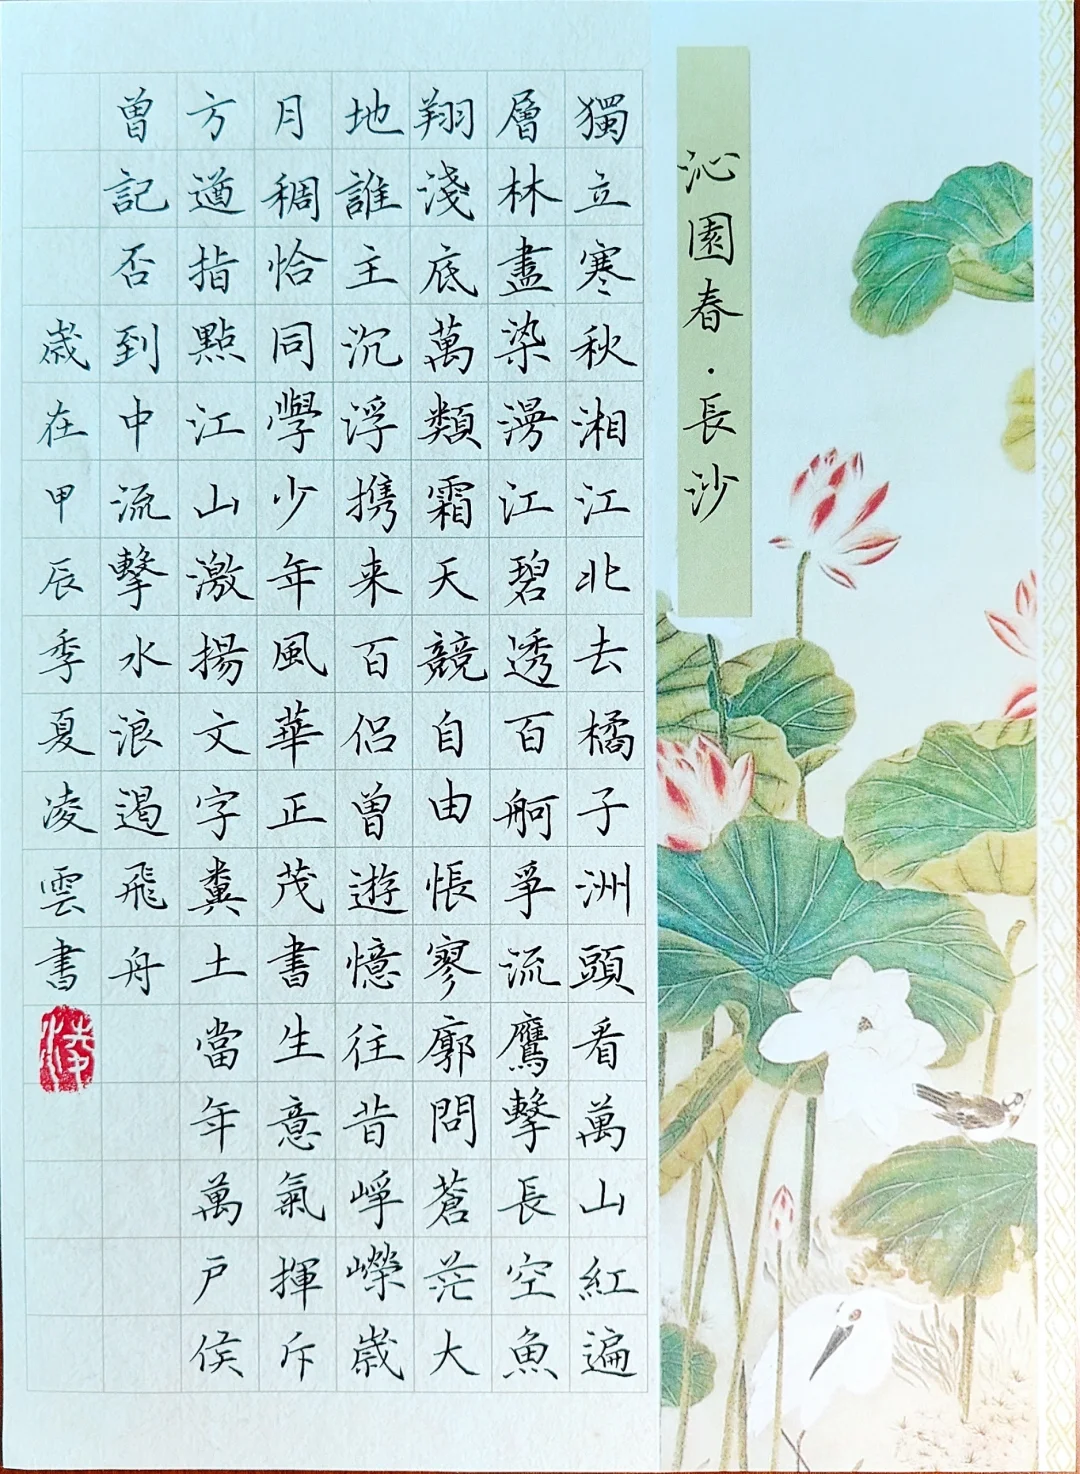 沁園春·長沙
獨立寒秋湘江北去橘子洲頭看萬山紅遍
層林盡染漫江碧透百舸爭流鷹擊長空魚
翔淺底萬類霜天競自由悵寥廓問蒼茫大
地誰主沉浮携来百侣曾遊憶往昔崢嶸歲
月稠恰同學少年風華正茂書生意氣揮斥
方遒指點江山激揚文字糞土當年萬戶侯
曾記否到中流擊水浪遏飛舟
歲在甲辰季夏凌雲書